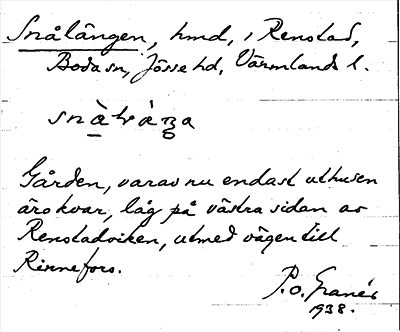 Snålången, hmd, i Renstad,
Boda sn, Jösse hd, Värmlands l.
Gården, varav nu endast uthusen
äro kvar, låg på västra sidan av
Renstadviken, utmed vägen till
Rinnefors.
P.O. Granér
1938.